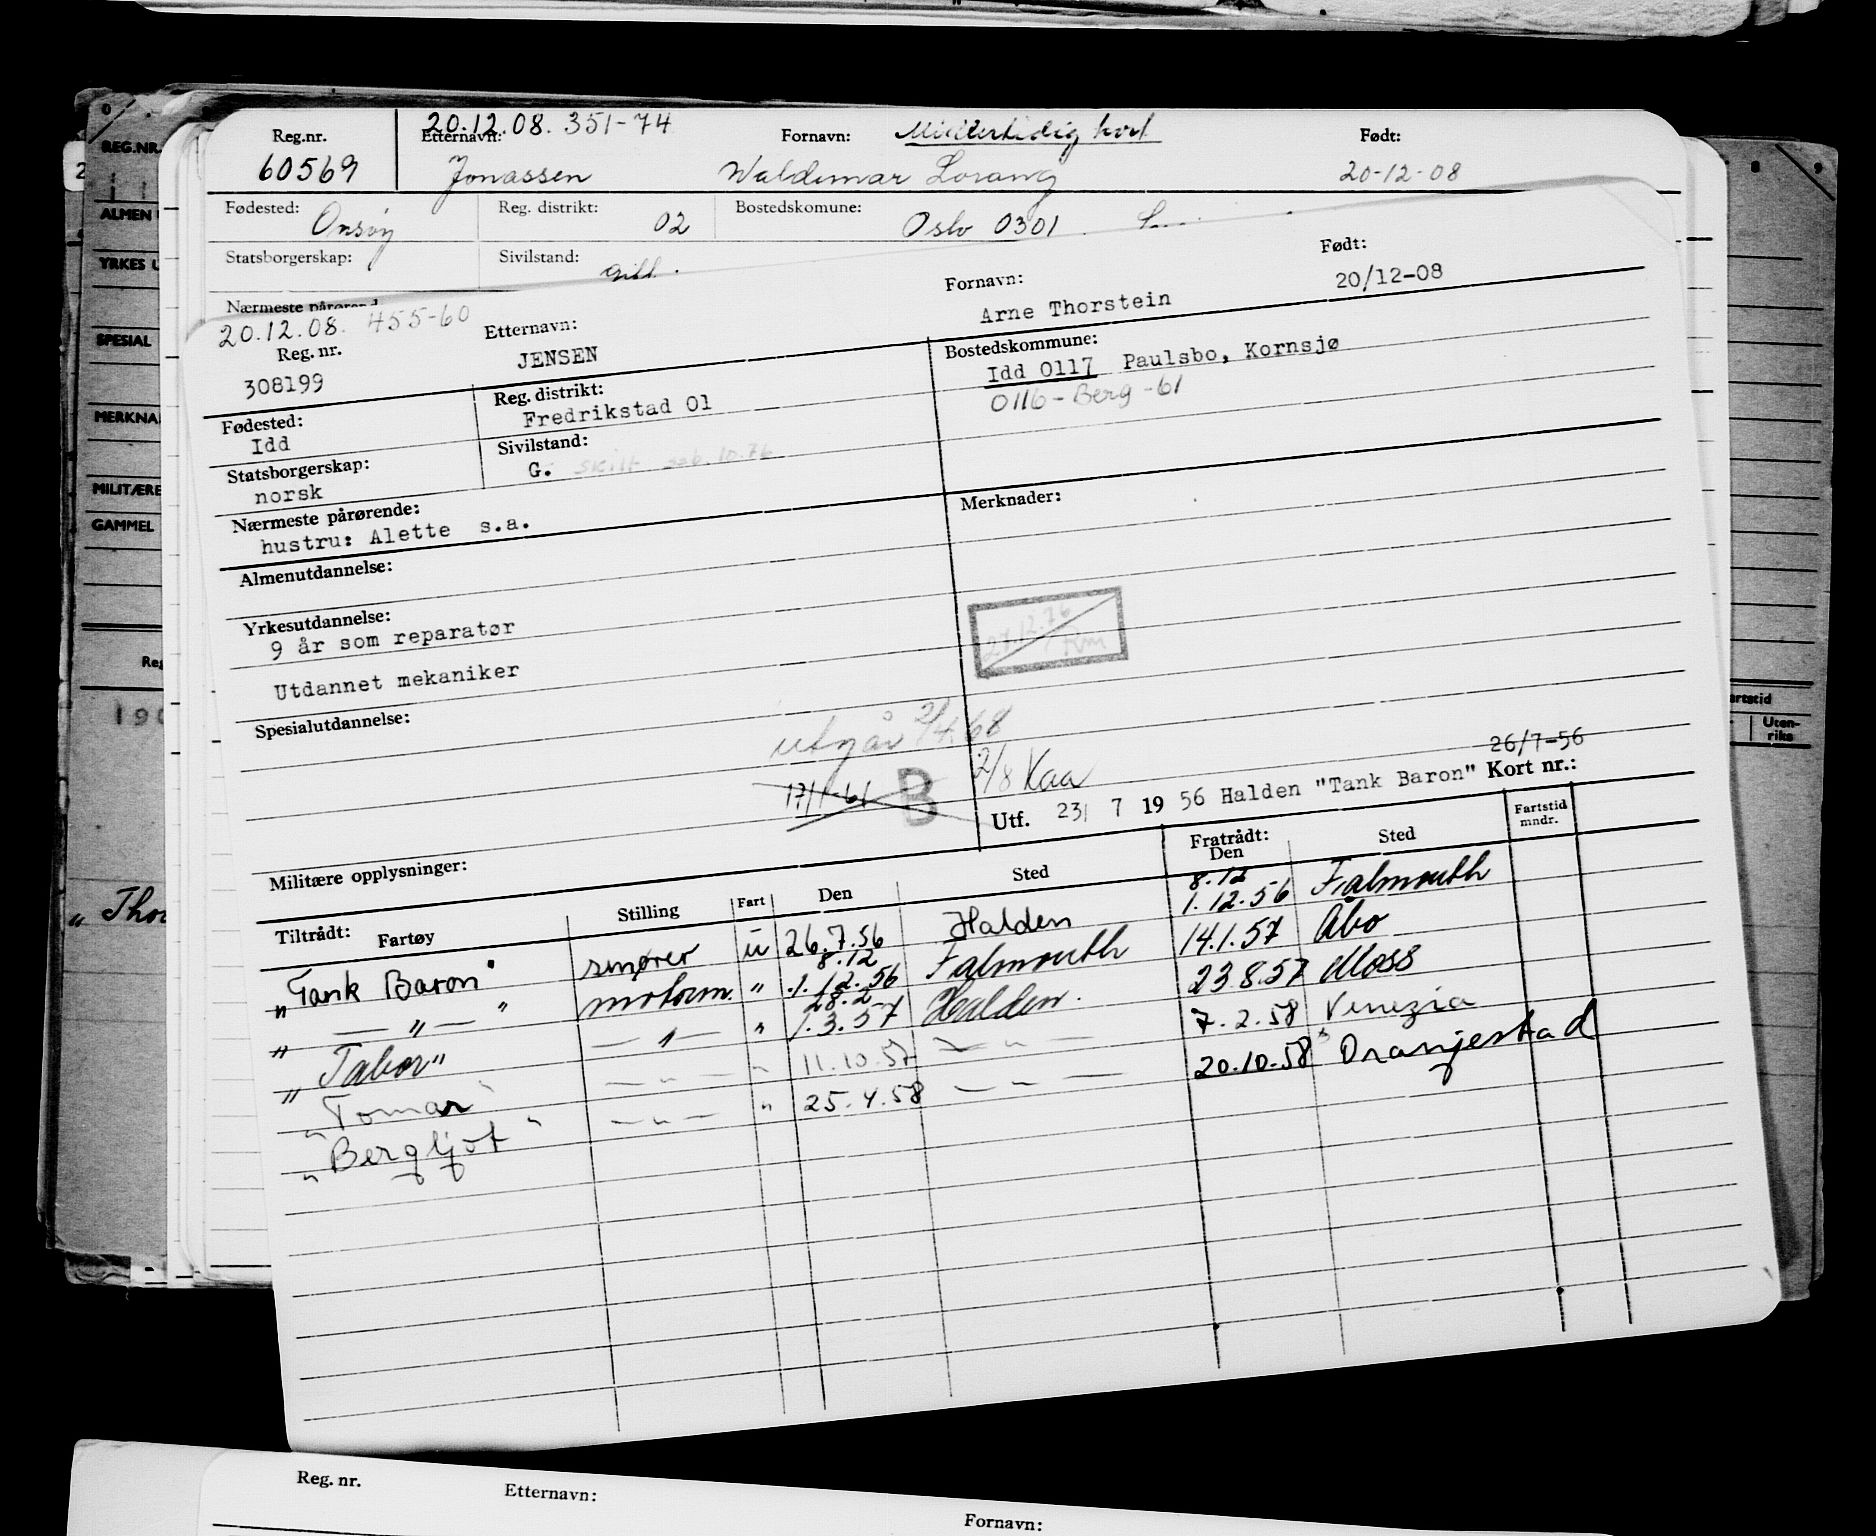 REG.NR.
ALMEN
YRKES U
SPESIAL
MERKNA
MILITÆRE
GAMMEL
Reg
190
„ Thor
artstid
Uten-
riks
20.12.08. 351-74
Reg.nr. Etternavn: Fornavn: Midlertidig kort Født:
60569 Jonassen Waldemar Lorang 20-12-08
Fødested: Onsøy Reg. distrikt: 02 Bostedskomune: Oslo 0301
Statsborgerskap: Sivilstand: gift.
Nærmeste pårørend
20.12.08. 455-60
Reg. nr. Etternavn: Fornavn: Født:
308199 JENSEN Arne Thorstein 20/12-08
Fødested: Reg. distrikt: Bostedskommune:
Idd Fredrikstad 01 Idd 0117 Paulsbo, Kornsjø
0116 - Berg -61
Statsborgerskap: Sivilstand:
norsk G. skilt sep. 10.76
Nærmeste pårørende: Merknader:
hustru: Alette s.a.
Almenutdannelse:
Yrkesutdannelse:
9 år som reparatør
27.12.76
Utdannet mekaniker
Spesialutdannelse:
utgår 2/4.68
2/8 Kaa
17/1-61 B
26/7-56
Utf. 23/ 7 19 56 Halden "Tank Baron" Kort nr.:
Militære opplysninger:
Tiltrådt: Fartøy Stilling Fart Den Sted Fratrådt: Den Sted Fartstid mndr.
8.12
„Tank Baron" smører u 26.7.56 Halden 1.12.56 Falmouth
8.12
„ — „ — " motorm. " 1.12.56 Falmouth 14.1.57 Åbo
28.2
„ Tabor" — " — " 1.3.57 Halden. 23.8.57 Moss
„ Tomar" — " — " 11.10.57 — " — 7.2.58 Venezia
„ Bergljot " — " — " 25.4.58 — " — 20.10.58 Oranjestad
Reg. nr. Etternavn: Fornavn: